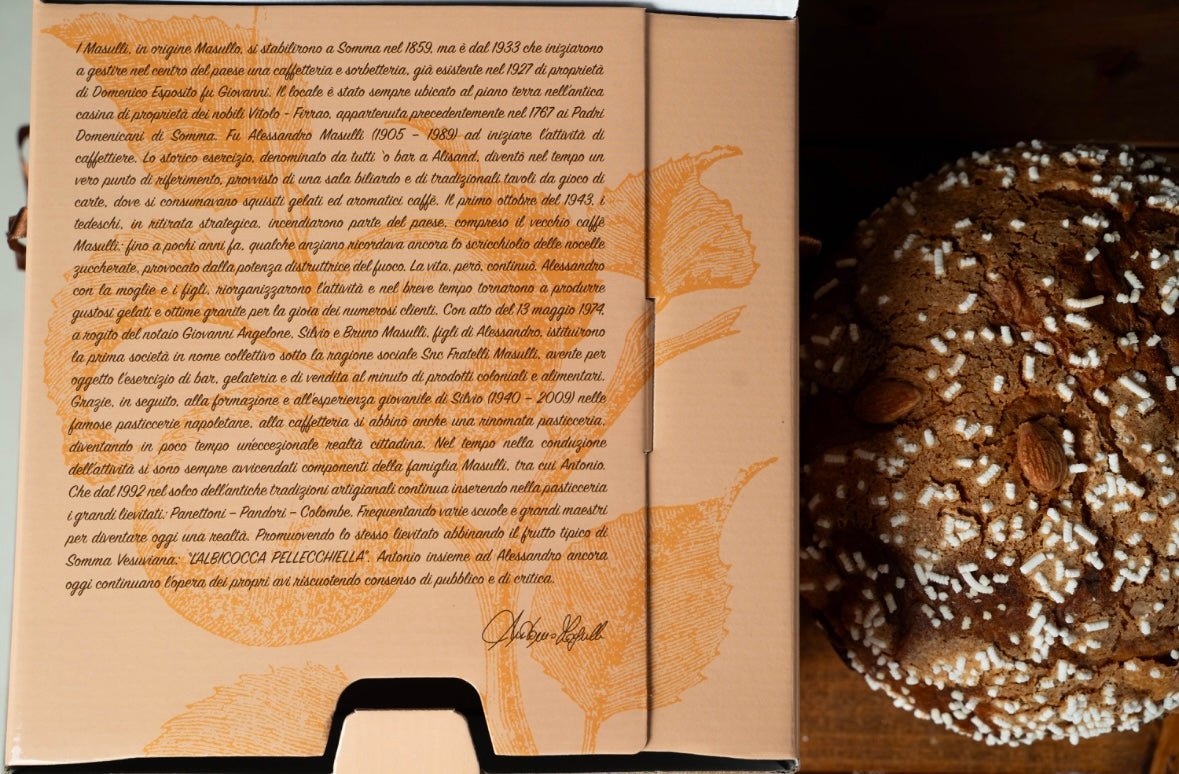 I Masulli, in origine Masullo, si stabilirono a Somma nel 1859, ma è dal 1933 che iniziarono
a gestire nel centro del paese una caffetteria e sorbetteria, già esistente nel 1927 di proprietà
di Domenico Esposito fu Giovanni. Il locale è stato sempre ubicato al piano terra nell'antica
casina di proprietà dei nobili Vitolo - Firrao, appartenuta precedentemente nel 1767 ai Padri
Domenicani di Somma. Fu Alessandro Masulli (1905 - 1989) ad iniziare l'attività di
caffettiere. Lo storico esercizio, denominato da tutti 'o bar a Alisand, diventò nel tempo un
vero punto di riferimento, provvisto di una sala biliardo e di tradizionali tavoli da gioco di
carte, dove si consumavano squisiti gelati ed aromatici caffè. Il primo ottobre del 1943, i
tedeschi, in ritirata strategica, incendiarono parte del paese, compreso il vecchio caffè
Masulli: fino a pochi anni fa, qualche anziano ricordava ancora lo scricchiolio delle nocelle
zuccherate, provocato dalla potenza distruttrice del fuoco. La vita, però, continuò. Alessandro
con la moglie e i figli, riorganizzarono l'attività e nel breve tempo tornarono a produrre
gustosi gelati e ottime granite per la gioia dei numerosi clienti. Con atto del 13 maggio 1974,
a rogito del notaio Giovanni Angelone, Silvio e Bruno Masulli, figli di Alessandro, istituirono
la prima società in nome collettivo sotto la ragione sociale Snc Fratelli Masulli, avente per
oggetto l'esercizio di bar, gelateria e di vendita al minuto di prodotti coloniali e alimentari.
Grazie, in seguito, alla formazione e all'esperienza giovanile di Silvio (1940 - 2009) nelle
famose pasticcerie napoletane, alla caffetteria si abbinò anche una rinomata pasticceria,
diventando in poco tempo un'eccezionale realtà cittadina. Nel tempo nella conduzione
dell'attività si sono sempre avvicendati componenti della famiglia Masulli, tra cui Antonio.
Che dal 1992 nel solco dell'antiche tradizioni artigianali continua inserendo nella pasticceria
i grandi lievitati: Panettoni - Pandori - Colombe. Frequentando varie scuole e grandi maestri
per diventare oggi una realtà. Promuovendo lo stesso lievitato abbinando il frutto tipico di
Somma Vesuviana: "L'ALBICOCCA PELLECCHIELLA". Antonio insieme ad Alessandro ancora
oggi continuano l'opera dei propri avi riscuotendo consenso di pubblico e di critica.